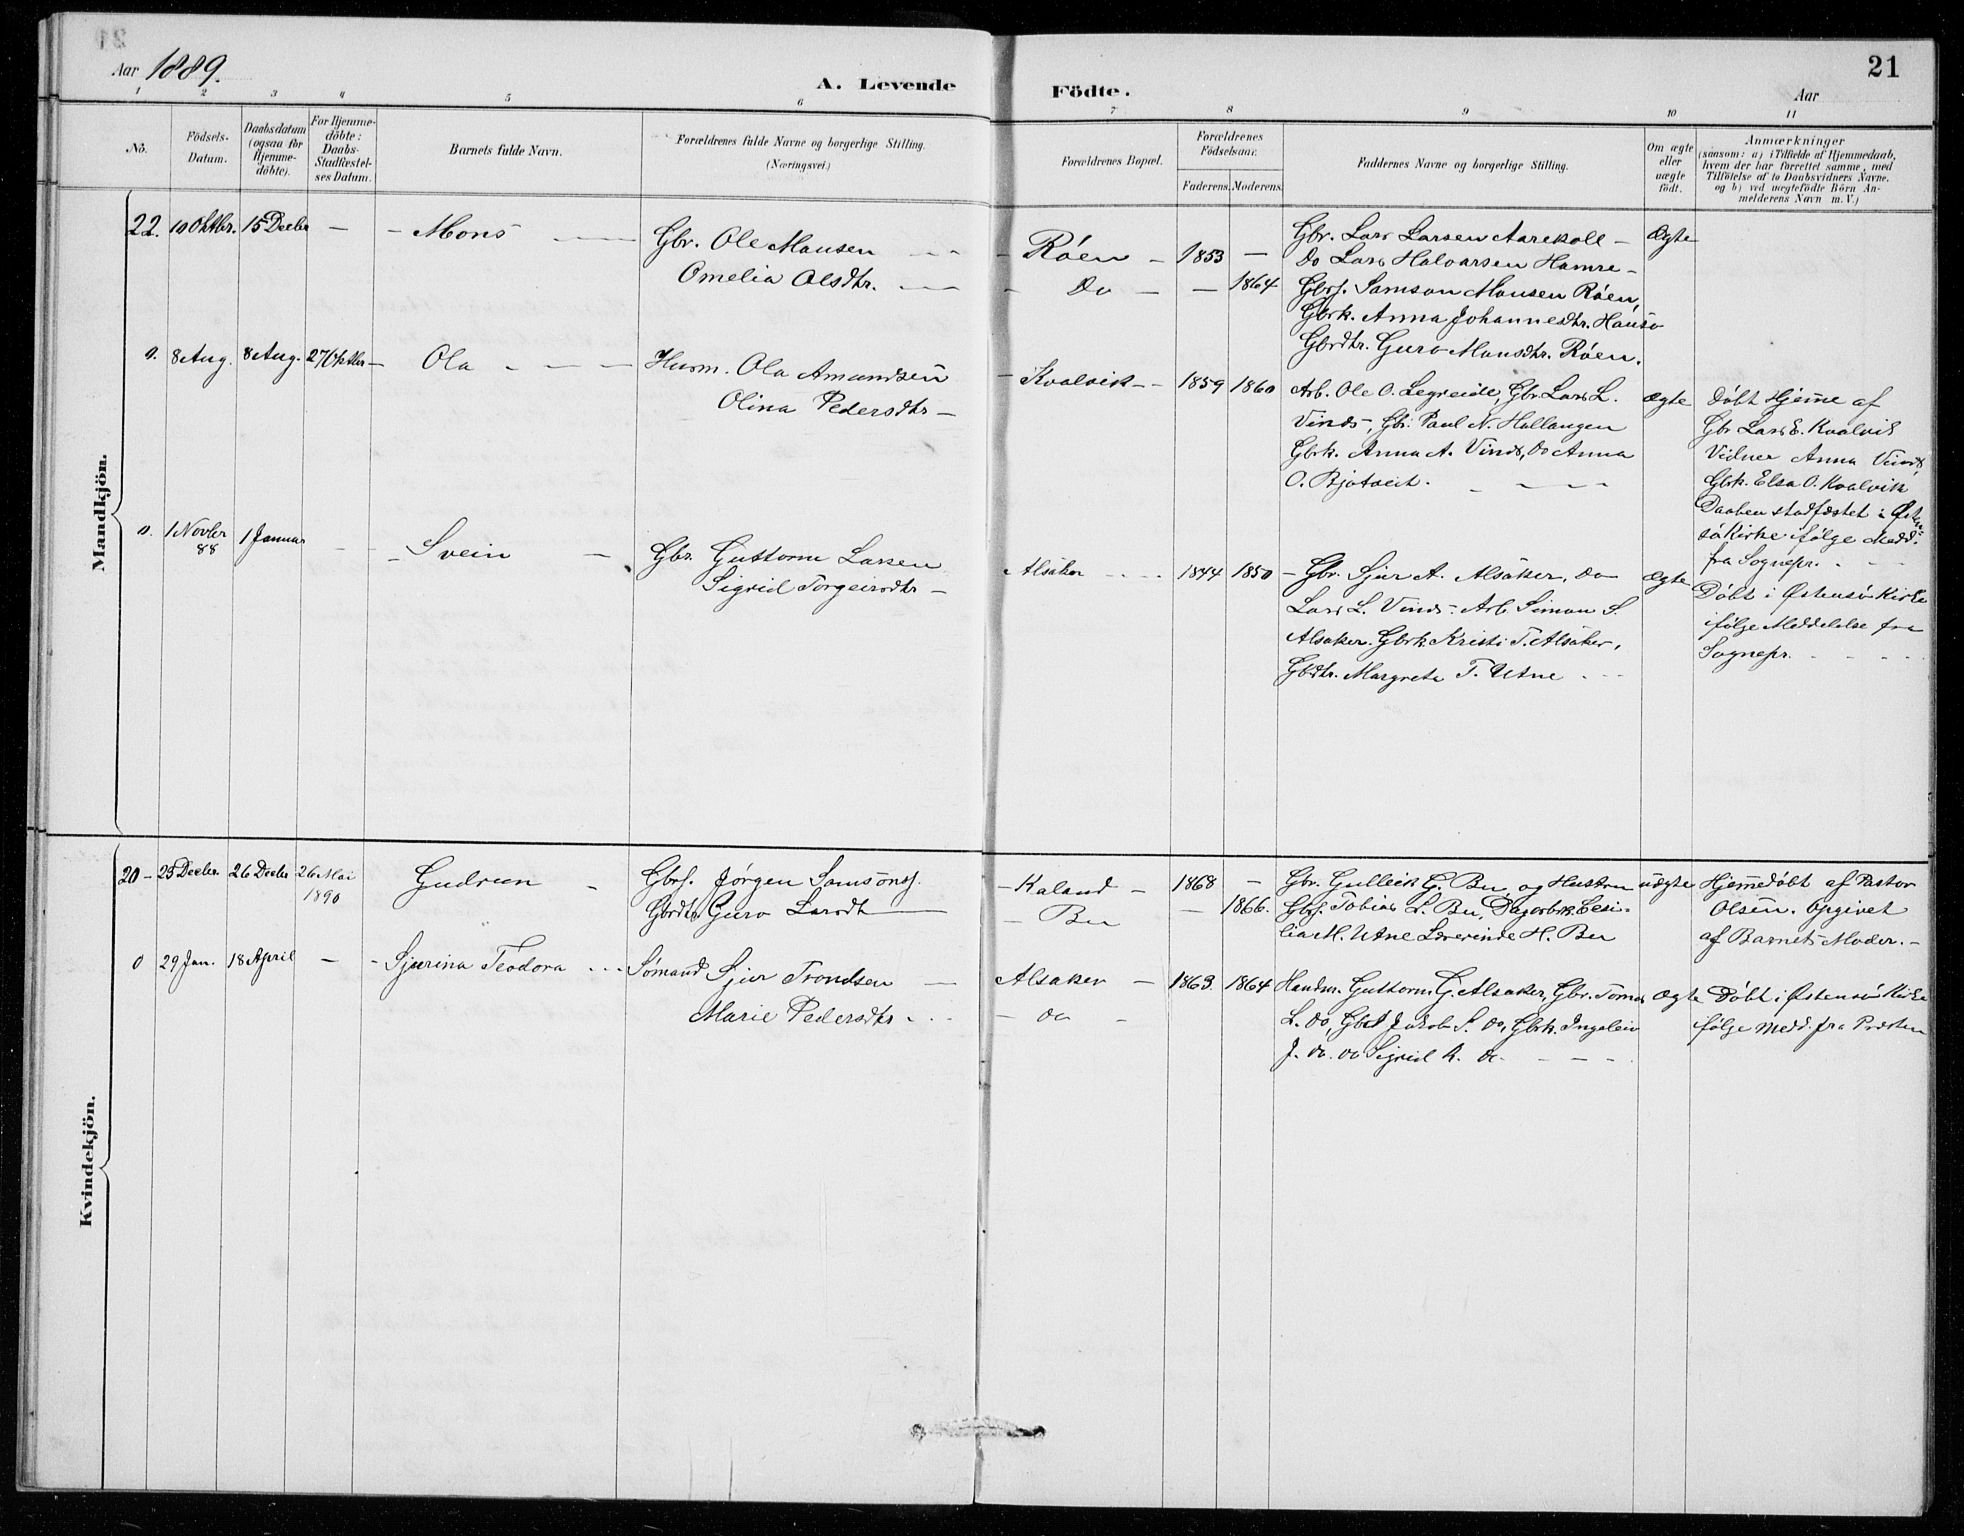 21
Aar 1889.
A. Levende
Födte.
Aar
1 2 3 4 5 6 7 8 9 10 11
No.
Födsels-
Datum.
Daabsdatum
(ogsaa for
Hjemme-
döbte).
For Hjemme-
döbte:
Daabs-
Stadfæstel-
ses Datum.
Barnets fulde Navn.
Forældrenes fulde Navne og borgerlige Stilling.
(Næringsvei.)
Forældrenes Bopæl.
Forældrenes
Födselsaar.
Faderens. Moderens.
Faddernes Navne og borgerlige Stilling.
Om ægte
eller
uægte
födt.
Anmærkninger
(saasom: a) i Tilfælde af Hjemmedaab,
hvem der har forrettet samme, med
Tilföielse af to Daabsvidners Navne,
og b) ved uægtefödte Börn An-
melderens Navn m. V.)
Mandkjön.
22. 10 Oktbr. 15 Decbr — - Mons —
Gbr. Ole Monsen
Omelia Olsdtr.
- Røen - 1853 —
- Do - — 1864
Gbr. Lars Larsen Aarekoll -
Do Lars Halvarsen Hamre -
Gbrs. Samson Monsen Røen,
Gbrk. Anna Johannesdtr. Hauso
Gbrdtr. Guro Monsdtr. Røen.
Ægte
0. 8 Aug. 8 Aug. 27 Oktbr — Ola —
Husm. Ola Amundsen
Olina Pedersdtr -
- Kvalvik - 1859 1860
Arb. Ole O. Legreide, Gbr. Lars L.
Vinds, Gbr. Paul N. Hollangen
Gbrk. Anna A. Vinds, Do Anna
O. Bjotveit.
ægte
Døbt Hjeme af
Gbr Lars E. Kvalvik
Vidner Anna Vinds
Gbrk. Elsa O. Kvalvik
Daaben stadfæstet i Østen-
sø Kirke ifølge Medd:
fra Sognepr.
0. 1 Novbr
88 1 Januar - Svein -
Gbr. Guttorm Larsen
Sigrid Torgeirsdtr -
Alsåker 1844 1850
- Gbr. Sjur A. Alsåker, do
Lars L. Vinds. Arb. Simon S.
Alsaker. Gbrk Kristi T. Alsåker,
Gbdtr. Margreta T. Utne
Ægte
Døbt i Østensø Kirke
ifølge Meddelelse fra
Sognepr.
Kvindekjön.
20 - 23 Decbr. 26 Decbr 26 Mai
1890 Gudrun -
Gbrs. Jørgen Samsons.
Gbrdtr Guro Larsdt
- Kaland - 1868 -
- Bu - 1866.
Gbr. Gulleik G. Bu, og Hustru
Gbrs. Tobias L. Bu, Dagarbk. Cesi-
lia M. Utne Lærerinde H. Bu
uægte
Hjemmedøbt af Pastor
Olsen. Opgivet
af Barnets Moder. -
0 29 Jan. 18 April - - Sjurina Teodora
Sømand Sjur Trondsen
Marie Pedersdtr
Alsaker - 1863. 1864
- do -
Handm. Guttorm G. Alsaker, Gbr. Tomas
L. do, Gbrs Jakob S. do, Gbrk. Ingeleiv
J. do. do Sigrid A. do.
Ægte
Døbt i Østensø Kirke
ifølge medd. fra Præsten